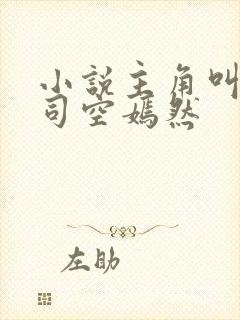 小説主角叫
司空嫣然
左助